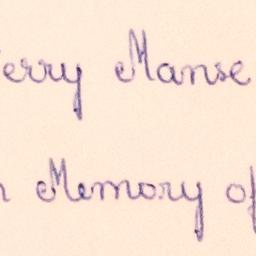 erry Manse
Memory of